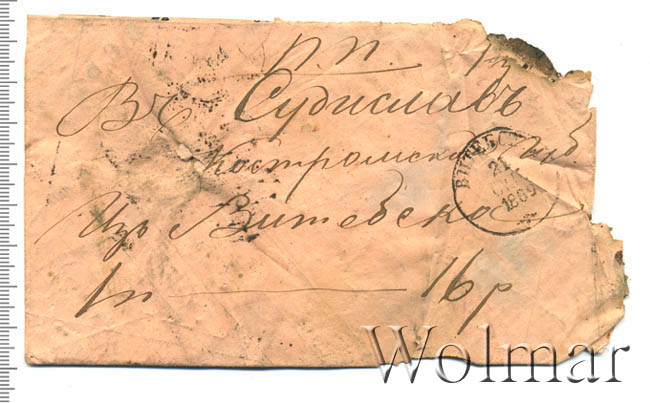 П.П.
Въ Судиславъ
Костромской Губ
Изъ Витебска
1п — 16 р
ВИТЕБ
Wolmar